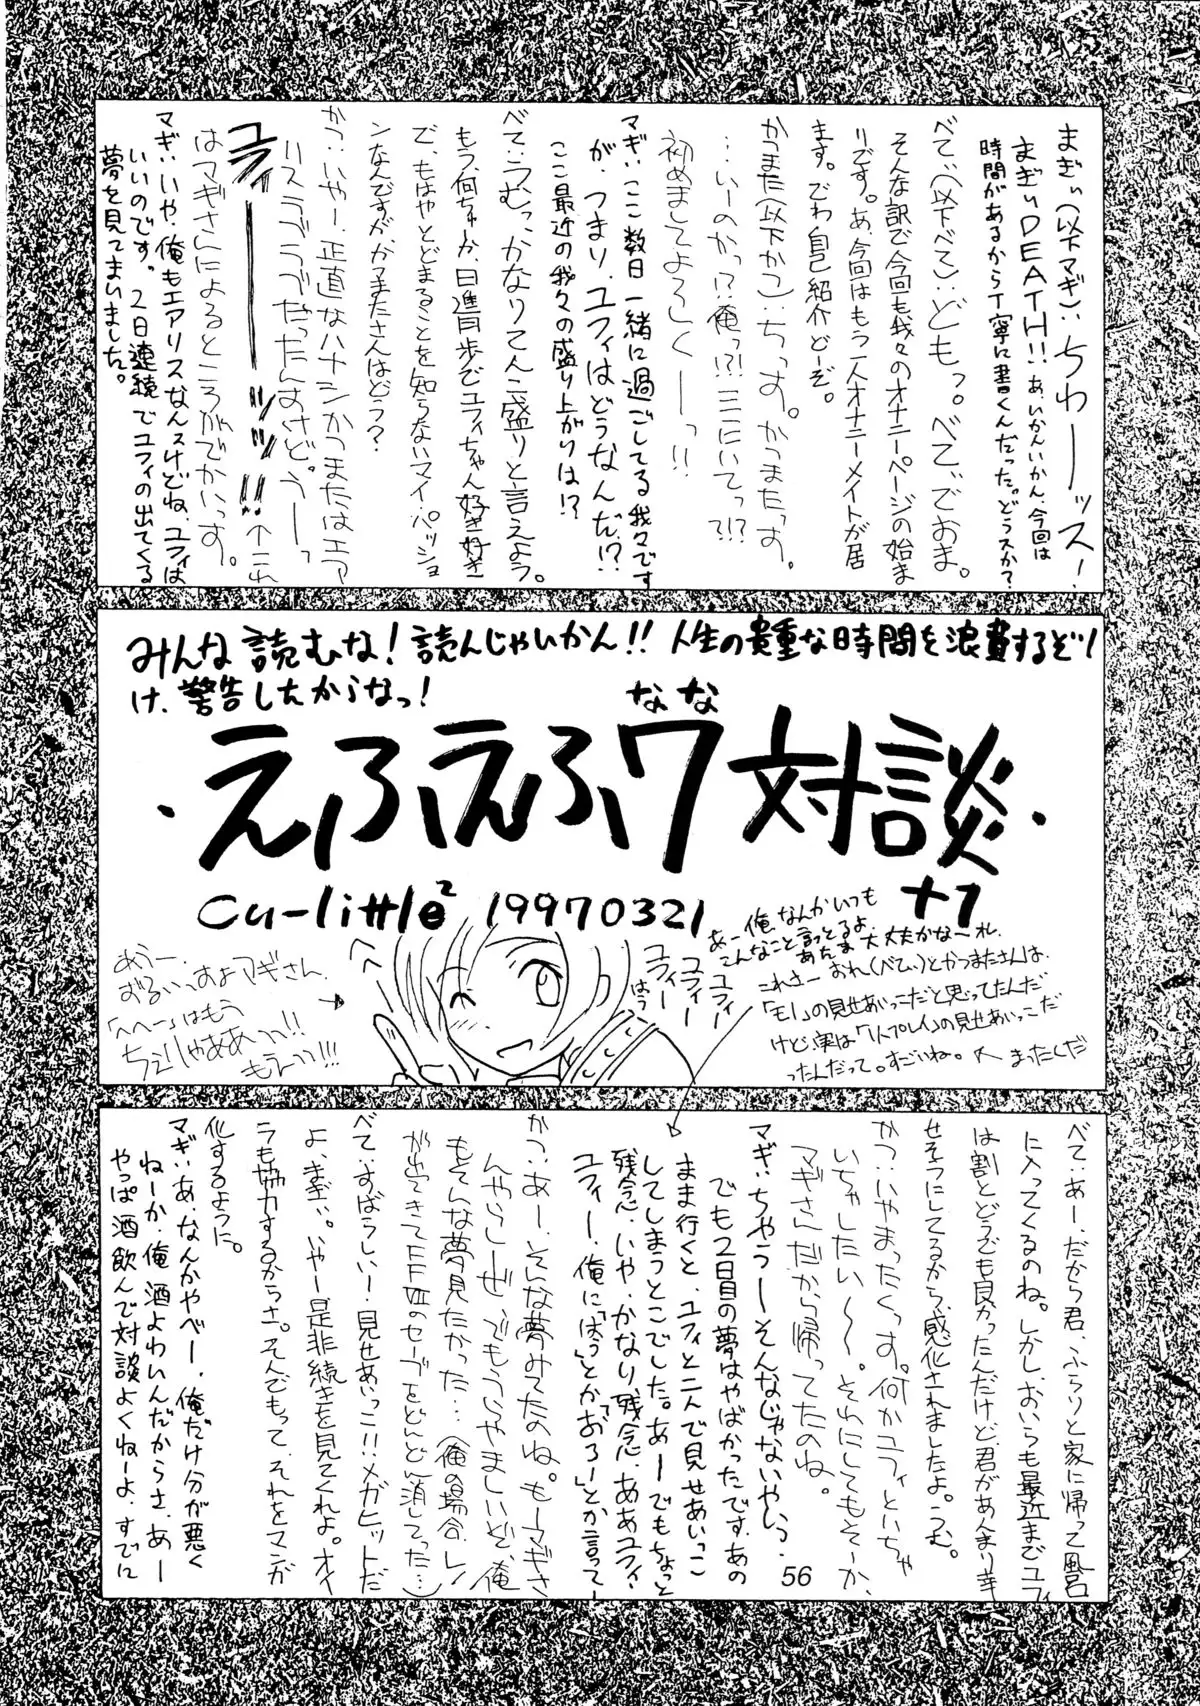 まぎぃ(以下マギ)：ちわーーッス！
まぎぃDEATH!!あ、いかんいかん、今回は
時間があるから丁寧に書くんだった。どうスか？
べて(以下べて)：どもっ。べてでおま。
そんな訳で今回も我々のオナニーページの始ま
りです。あ、今回はもう一人オナニーメイトが居
ます。でわ自己紹介どーぞ。
かつまた(以下かつ)：ちっす。かつまたっす。
…いーのかっ!?俺っ!?ここにいてっ?!?
初めましてよろしくーーっ!!
マギ：ここ数日一緒に過ごしてる我々です
が、つまり、ユフィはどうなんだ!?
ここ最近の我々の盛り上がりは!?
べて：うむっ、かなりてんこ盛りと言えよう。
もう、何ちゅーか、日進月歩でユフィちゃん好き好き
で、もはやとどまることを知らないマイ・パッショ
ンなんですが、かつまたさんはどう？
かつ：いやー、正直なハナシかつまたはエア
リスラブラブだったんすけど。うーっ
ユフィーーーーッッッ!!↑これ
はマギさんによるところがでかいっす。
マギ：いや、俺もエアリスなんスけどね、ユフィは
いいのです。2日連続でユフィの出てくる
夢を見てまいました。
みんな読むな！読んじゃいかん!!人生の貴重な時間を浪費するぞッ！
け、警告したからなっ！
なな
・えふえふ7対談・
+1
Cu-little² 19970321
あうー、
ずるいっすよマギさん。
「へへー」はもう
ちぇりゃああっっ!!
もえっっ!!!
へへー
ユフィー
ユフィー
ユフィー
はう
あー俺なんかいつも
こんなこと言っとるよ。
あたま大丈夫かなーオレ。
これさー おれ(べて)とかつまたさんは、
「モノ」の見せあいっこだと思ってたんだ
けど、実は「リプレイ」の見せあいっこだ
ったんだって。すごいね。 まったくだ
べて：あー、だから君、ふらりと家に帰って風呂
に入ってくるのね。しかし、おいらも最近までユフィ
は割とどうでも良かったんだけど、君があんまり幸
せそうにしてるから、感化されましたよ。うむ。
かつ：いやまったくっす。何かユフィといちゃ
いちゃしたい～～。それにしてもそーか、
マギさんだから帰ってたのね。
マギ：ちゃうーそんなじゃないやいっ。
でも2日目の夢はやばかったです。あの
まま行くと、ユフィと二人で見せあいっこ
してしまうとこでした。あーーでもちょっと
残念、いや、かなり残念、ああユフィ、
ユフィー、俺に「はうっ」とか「おろー」とか言ってー
かつ：あー、そんな夢みてたのね。もーマギさ
んやらしーぜ。でもうらやましいぞ、俺
もそんな夢見たかった…(俺の場合、レ
が出てきてFF㐧のセーブをどんどん消してった…)
べて：すばらしい！見せあいっこ!!メガヒットだ
よ、まぎぃ。いやー是非続きを見てくれよ。オイ
ラも協力するからさ。そんでもって、それをマンガ
化するように。
マギ：あ、なんかやべー、俺だけ分が悪く
ねーか、俺酒よわいんだからさ、あー
やっぱ酒飲んで対談よくねーよ、すでに
56